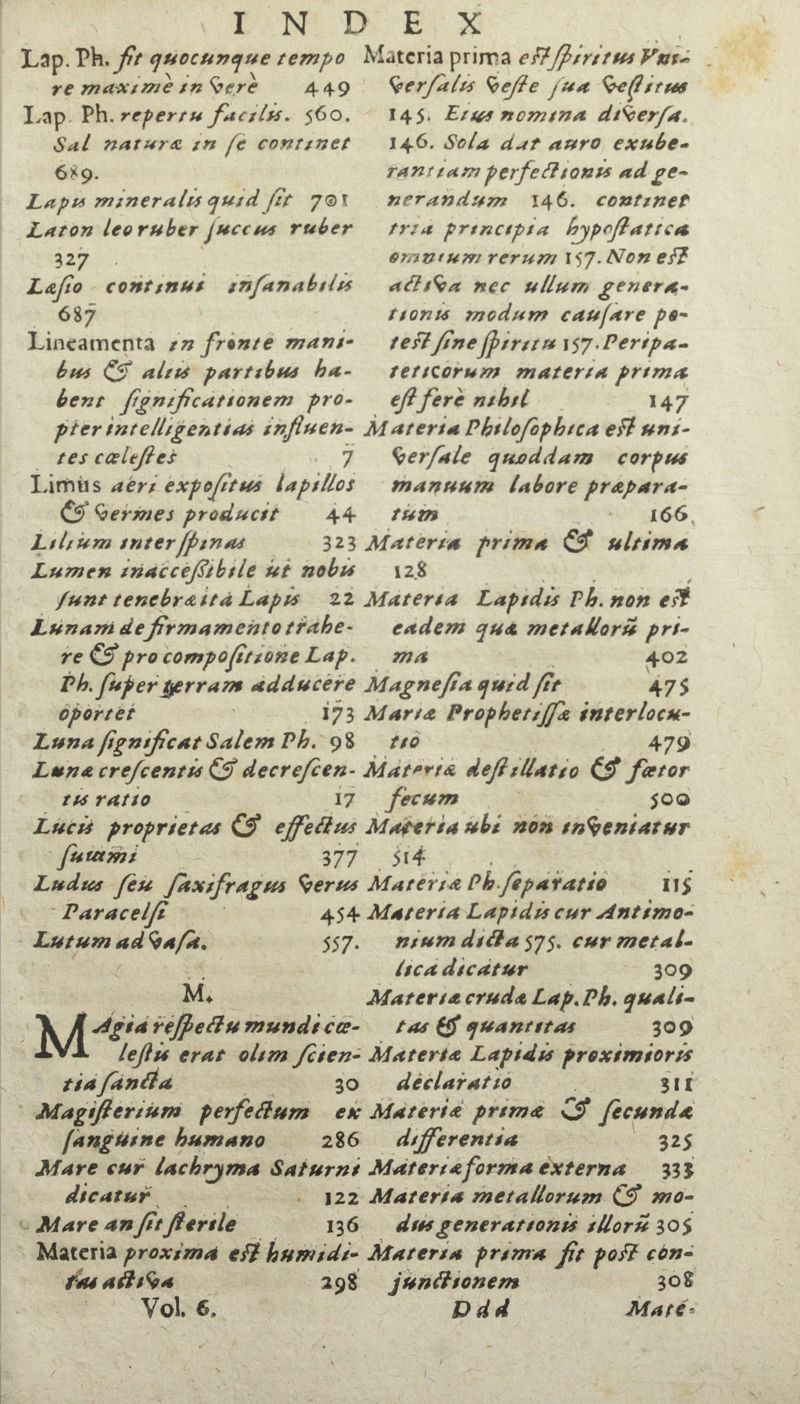 INDEX
Lap. Ph. fit quocunque tempo
re maximè in verè 449
Lap Ph. repertu facilis. 560.
Sal naturæ in se continet
689.
Lapis mineralis quid sit 701
Laton leo ruber succus ruber
327
Læsio continui insanabilis
687
Lineamenta in fronte mani-
bus & aliis partibus ha-
bent significationem pro-
pter intelligentias influen-
tes cœlestes 7
Limus aeri expositus lapillos
& vermes producit 44
Lilium inter spinas 323
Lumen inaccessibile ut nobis
sunt tenebræ ità Lapis 22
Lunam de firmamento trahe-
re & pro compositione Lap.
Ph. super terram adducere
oportet 173
Luna significat Salem Ph. 98
Lunæ crescentis & decrescen-
tis ratio 17
Lucis proprietas & effectus
summi 377
Ludus seu saxifragus verus
Paracelsi 454
Lutum ad vasa. 557.
M.
MAgia respectu mundi cœ-
lestis erat olim scien-
tia sancta 30
Magisterium perfectum ex
sanguine humano 286
Mare cur lachryma Saturni
dicatur 122
Mare an sit sterile 136
Materia proxima est humidi-
tas activa 298
Vol. 6.
Materia prima est spiritus Vni-
versalis veste sua vestitus
145. Eius nomina diversa.
146. Sola dat auro exube-
rantiam perfectionis ad ge-
nerandum 146. continet
tria principia hypostatica
omnium rerum 157. Non est
activa nec ullum genera-
tionis modum causare po-
test sine spiritu 157. Peripa-
teticorum materia prima
est ferè nihil 147
Materia Philosophica est uni-
versale quoddam corpus
manuum labore præpara-
tum 166
Materia prima & ultima
128
Materia Lapidis Ph. non est
eadem quæ metallorũ pri-
ma 402
Magnesia quid sit 475
Mariæ Prophetissæ interlocu-
tio 479
Materiæ destillatio & fœtor
secum 500
Materia ubi non inveniatur
514
Materiæ Ph. separatio 115
Materia Lapidis cur Antimo-
nium dicta 575. cur metal-
lica dicatur 309
Materiæ crudæ Lap. Ph. quali-
tas & quantitas 309
Materiæ Lapidis proximioris
declaratio 311
Materiæ primæ & secundæ
differentia 325
Materiæ forma externa 333
Materia metallorum & mo-
dus generationis illorũ 305
Materia prima fit post con-
junctionem 308
Ddd Mate-